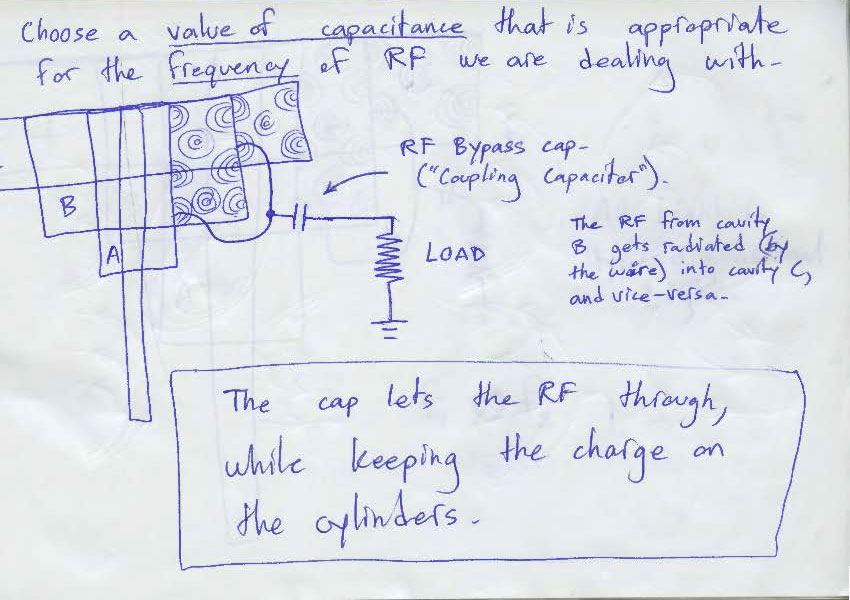 Choose a value of capacitance that is appropriate
for the frequency of RF we are dealing with-
RF Bypass cap-
("Coupling Capacitor").
B
A
LOAD
The RF from cavity
B gets radiated (by
the wire) into cavity C,
and vice-versa-
The cap lets the RF through,
while keeping the charge on
the cylinders-